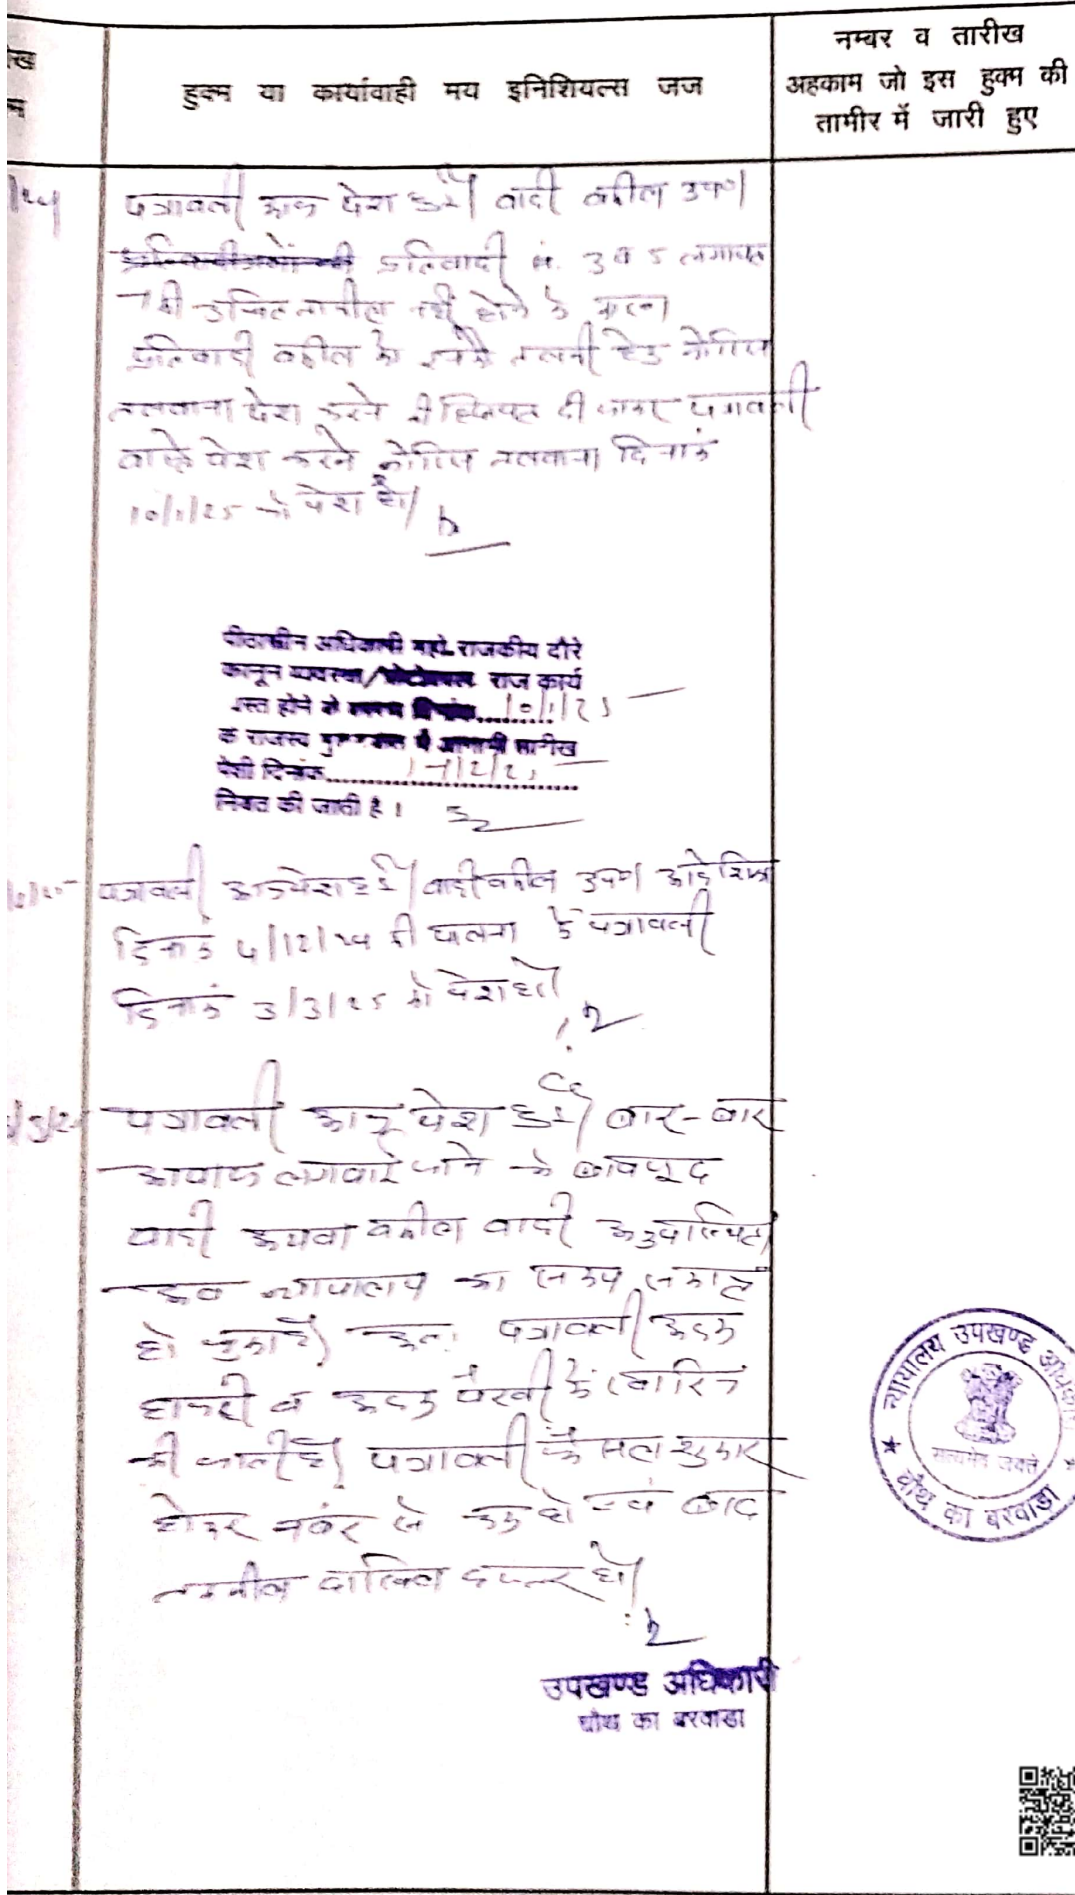 हुक्म या कार्यावाही मय इनिशियल्स जज
नम्बर व तारीख
अहकाम जो इस हुक्म की
तामीर में जारी हुए
पत्रावली आज पेश हुई। वादी वकील उप०।
प्रतिवादी नं. 3 व 5 लगायत
की उचित तामील नहीं होने के कारण
प्रतिवादी वकील के तलबी हेतु नोटिस
तलवाना पेश करने की हिदायत दी जाकर पत्रावली
वास्ते पेश करने नोटिस तलवाना दिनांक
10/1/25 को पेश हो।
पीठासीन अधिकारी महो. राजकीय दौरे
कानून व्यवस्था/प्रोटोकाल राज कार्य
स्त होने के कारण दिनांक 10/1/25
के राजस्व में आगामी तारीख
पेशी दिनांक
नियत की जाती है।
पत्रावली आज पेश हुई। वादी वकील उप०। आदेशिका
दिनांक 4/12/24 की पालना में पत्रावली
दिनांक 3/3/25 को पेश हो।
पत्रावली आज पेश हुई। बार-बार
आवाज लगवाये जाने के बावजूद
वादी अथवा वकील वादी अनुपस्थित।
अब न्यायालय का समय समाप्त
हो चुका है। अतः पत्रावली अदम
हाजरी व अदम पैरवी में खारिज
की जाती है। पत्रावली फैसल शुमार
होकर नंबर से कम हो एवं बाद
तकमील दाखिल दफ्तर हो।
उपखण्ड अधिकारी
चौथ का बरवाडा
न्यायालय उपखण्ड अधिकारी
सत्यमेव जयते
चौथ का बरवाडा